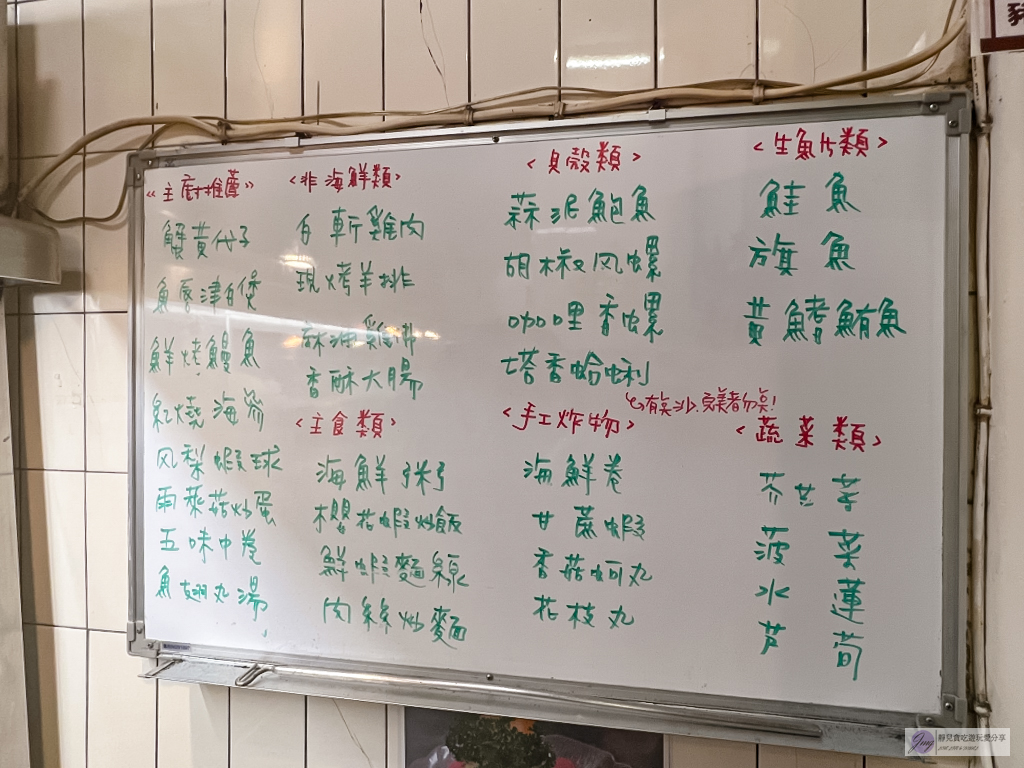 《主廚推薦》
蟹黃代子
魚唇津白煲
鮮烤鰻魚
紅燒海參
风梨蝦球
雨來菇炒蛋
五味中卷
魚翅丸湯
<非海鮮類>
白斬雞肉
現烤羊排
麻油雞
香酥大腸
<主食類>
海鮮粥
櫻花蝦炒飯
鮮蚵麵線
肉絲炒麵
<貝殼類>
蒜泥鮑魚
胡椒风螺
咖哩香螺
塔香蛤蜊
有美沙.完美者勿点!
<手工炸物>
海鮮卷
甘蔗蝦
香菇蚵丸
花枝丸
<生魚片類>
鮭魚
旗魚
黃鰭鮪魚
<蔬菜類>
芥芸
菠菜
水蓮
芦筍
靜兒貪吃遊玩愛分享